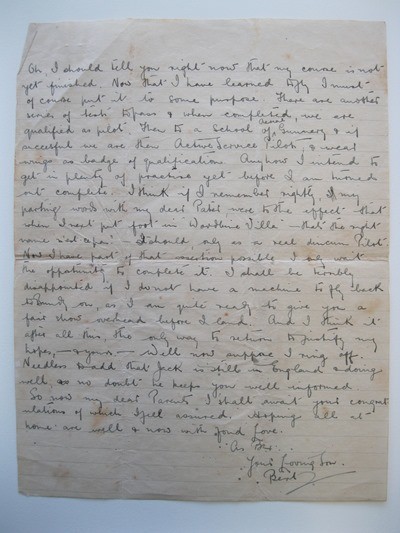 Oh, I should tell you right now that my course is not
yet finished. Now that I have learned to fly I must
of course put it to some purpose. There are another
series of tests to pass & when completed, we are
qualified as pilot. Then to a School of Aerial Gunnery & if
successful we are then Active Service Pilots & wear
wings as badge of qualification. Anyhow I intend to
get in plenty of practise yet before I am turned
out complete. I think if I remember rightly, my
parting words with my dear Pater were to the effect that
when I next put foot in Villa that the right
name I should, only as a real Pilot
Now I have part of that possible I only wait
the oppatunity to complete it. I shall be horribly
disappointed if I do not have a machine to fly back
to on, as I am quite ready to give you a
fair show overhead before I land. And I think it
after all this, the only way to return to justify my
hopes, — & yours — Well now suppose I ring off.
Needless to add that Jack is still in England & doing
well, as no doubt he keeps you well informed.
So now my dear Parents I shall await your congrat
ulations of which I feel assured. Hoping all at
home are well & now with fond love.
As Ever.
Your loving Son.
Bert